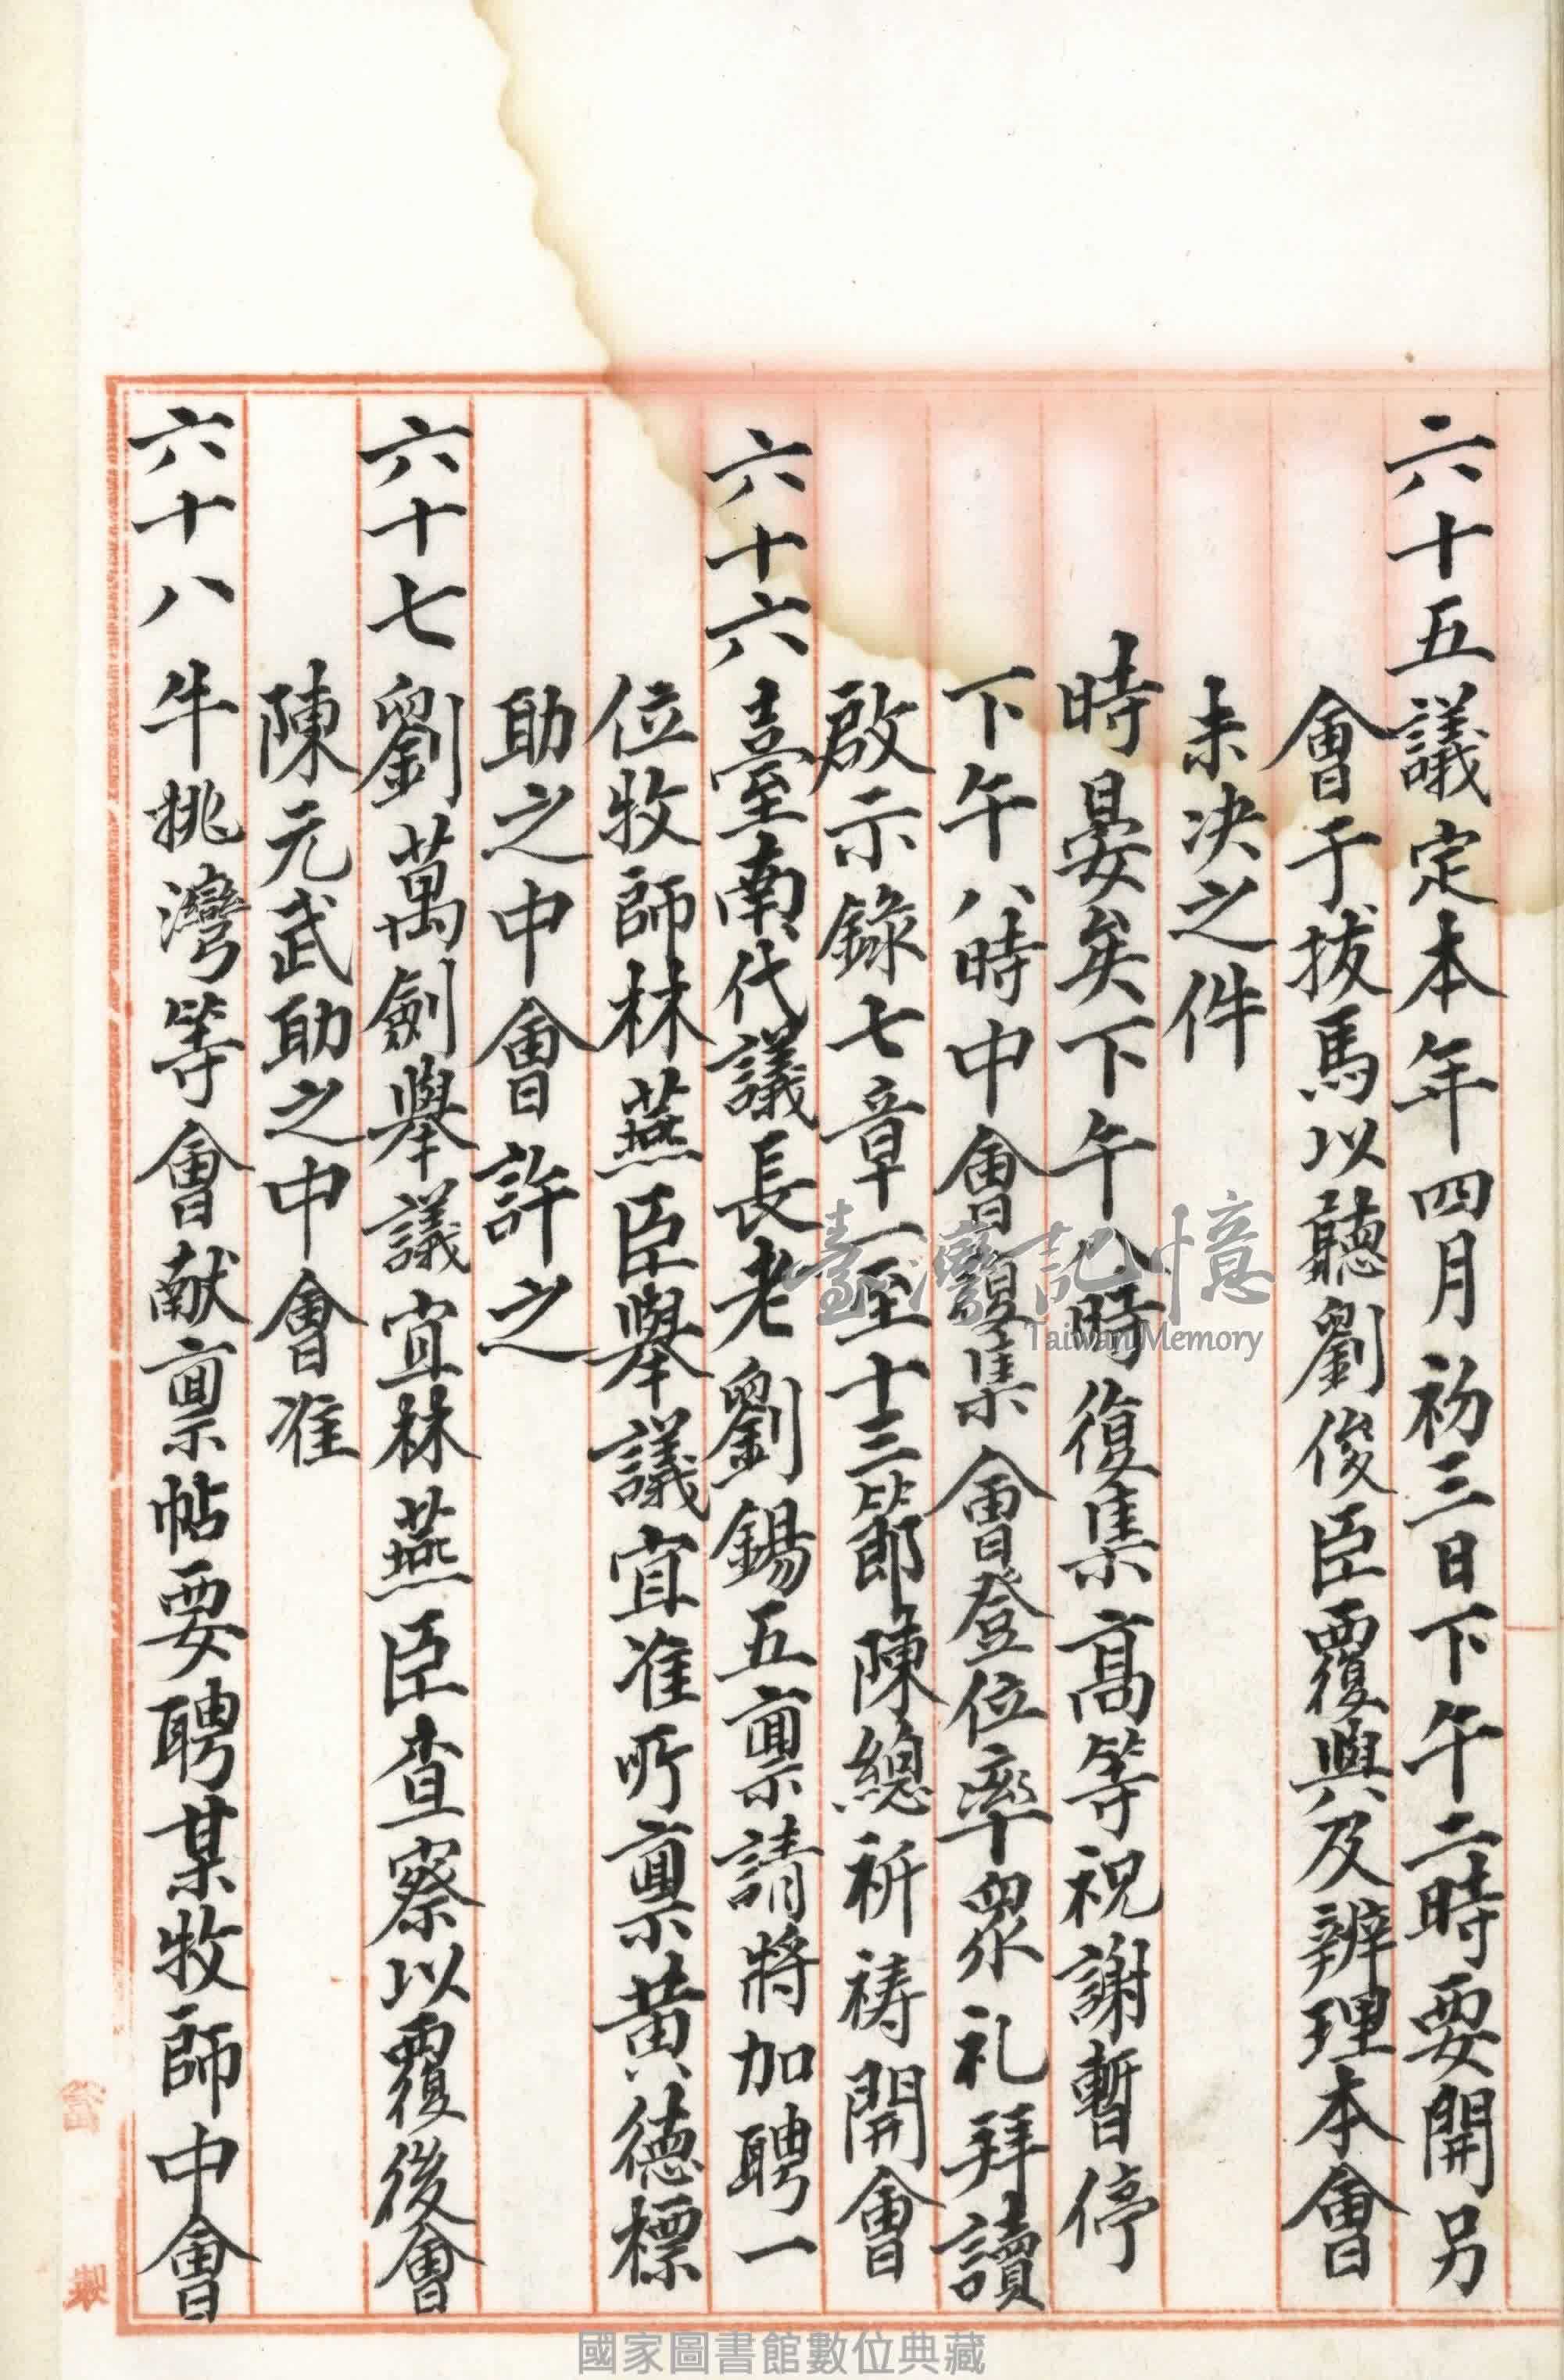 六十五議定本年四月初三日下午二時要開另
會于拔馬以聽劉俊臣覆興及辦理本會
未決之件
時晏矣下午八時復集高等祝謝暫停
下午八時中會復集會登位率眾礼拜讀
啟示錄七章一至十三節陳總祈禱開會
六十六臺南代議長老劉錫五稟請將加聘一
位牧師林燕臣舉議宜准所稟黃德標
助之中會許之
六十七劉萬劍舉議宜林燕臣查察以覆後會
陳元武助之中會准
六十八牛挑灣等會献稟帖要聘某牧師中會
臺灣記憶
Taiwan Memory
國家圖書館數位典藏